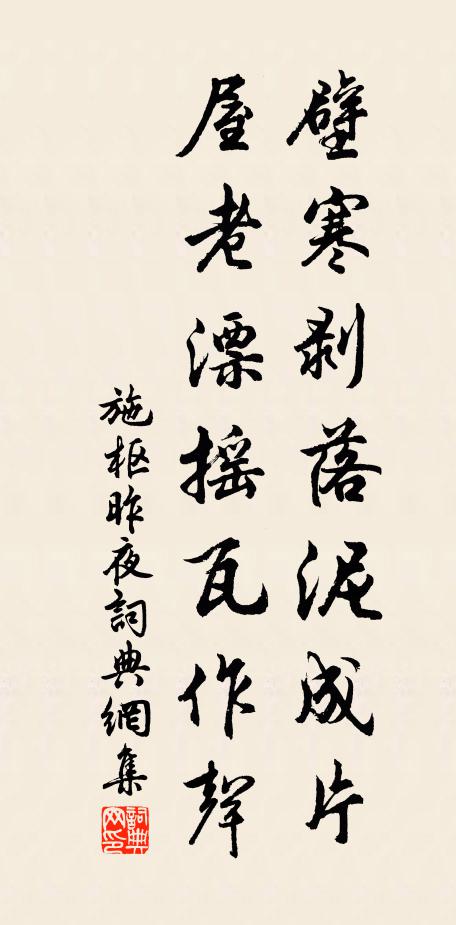 壁寒剥落泥成片
屋老漂摇瓦作聲
施枢昨夜詞典網集
詞典網印